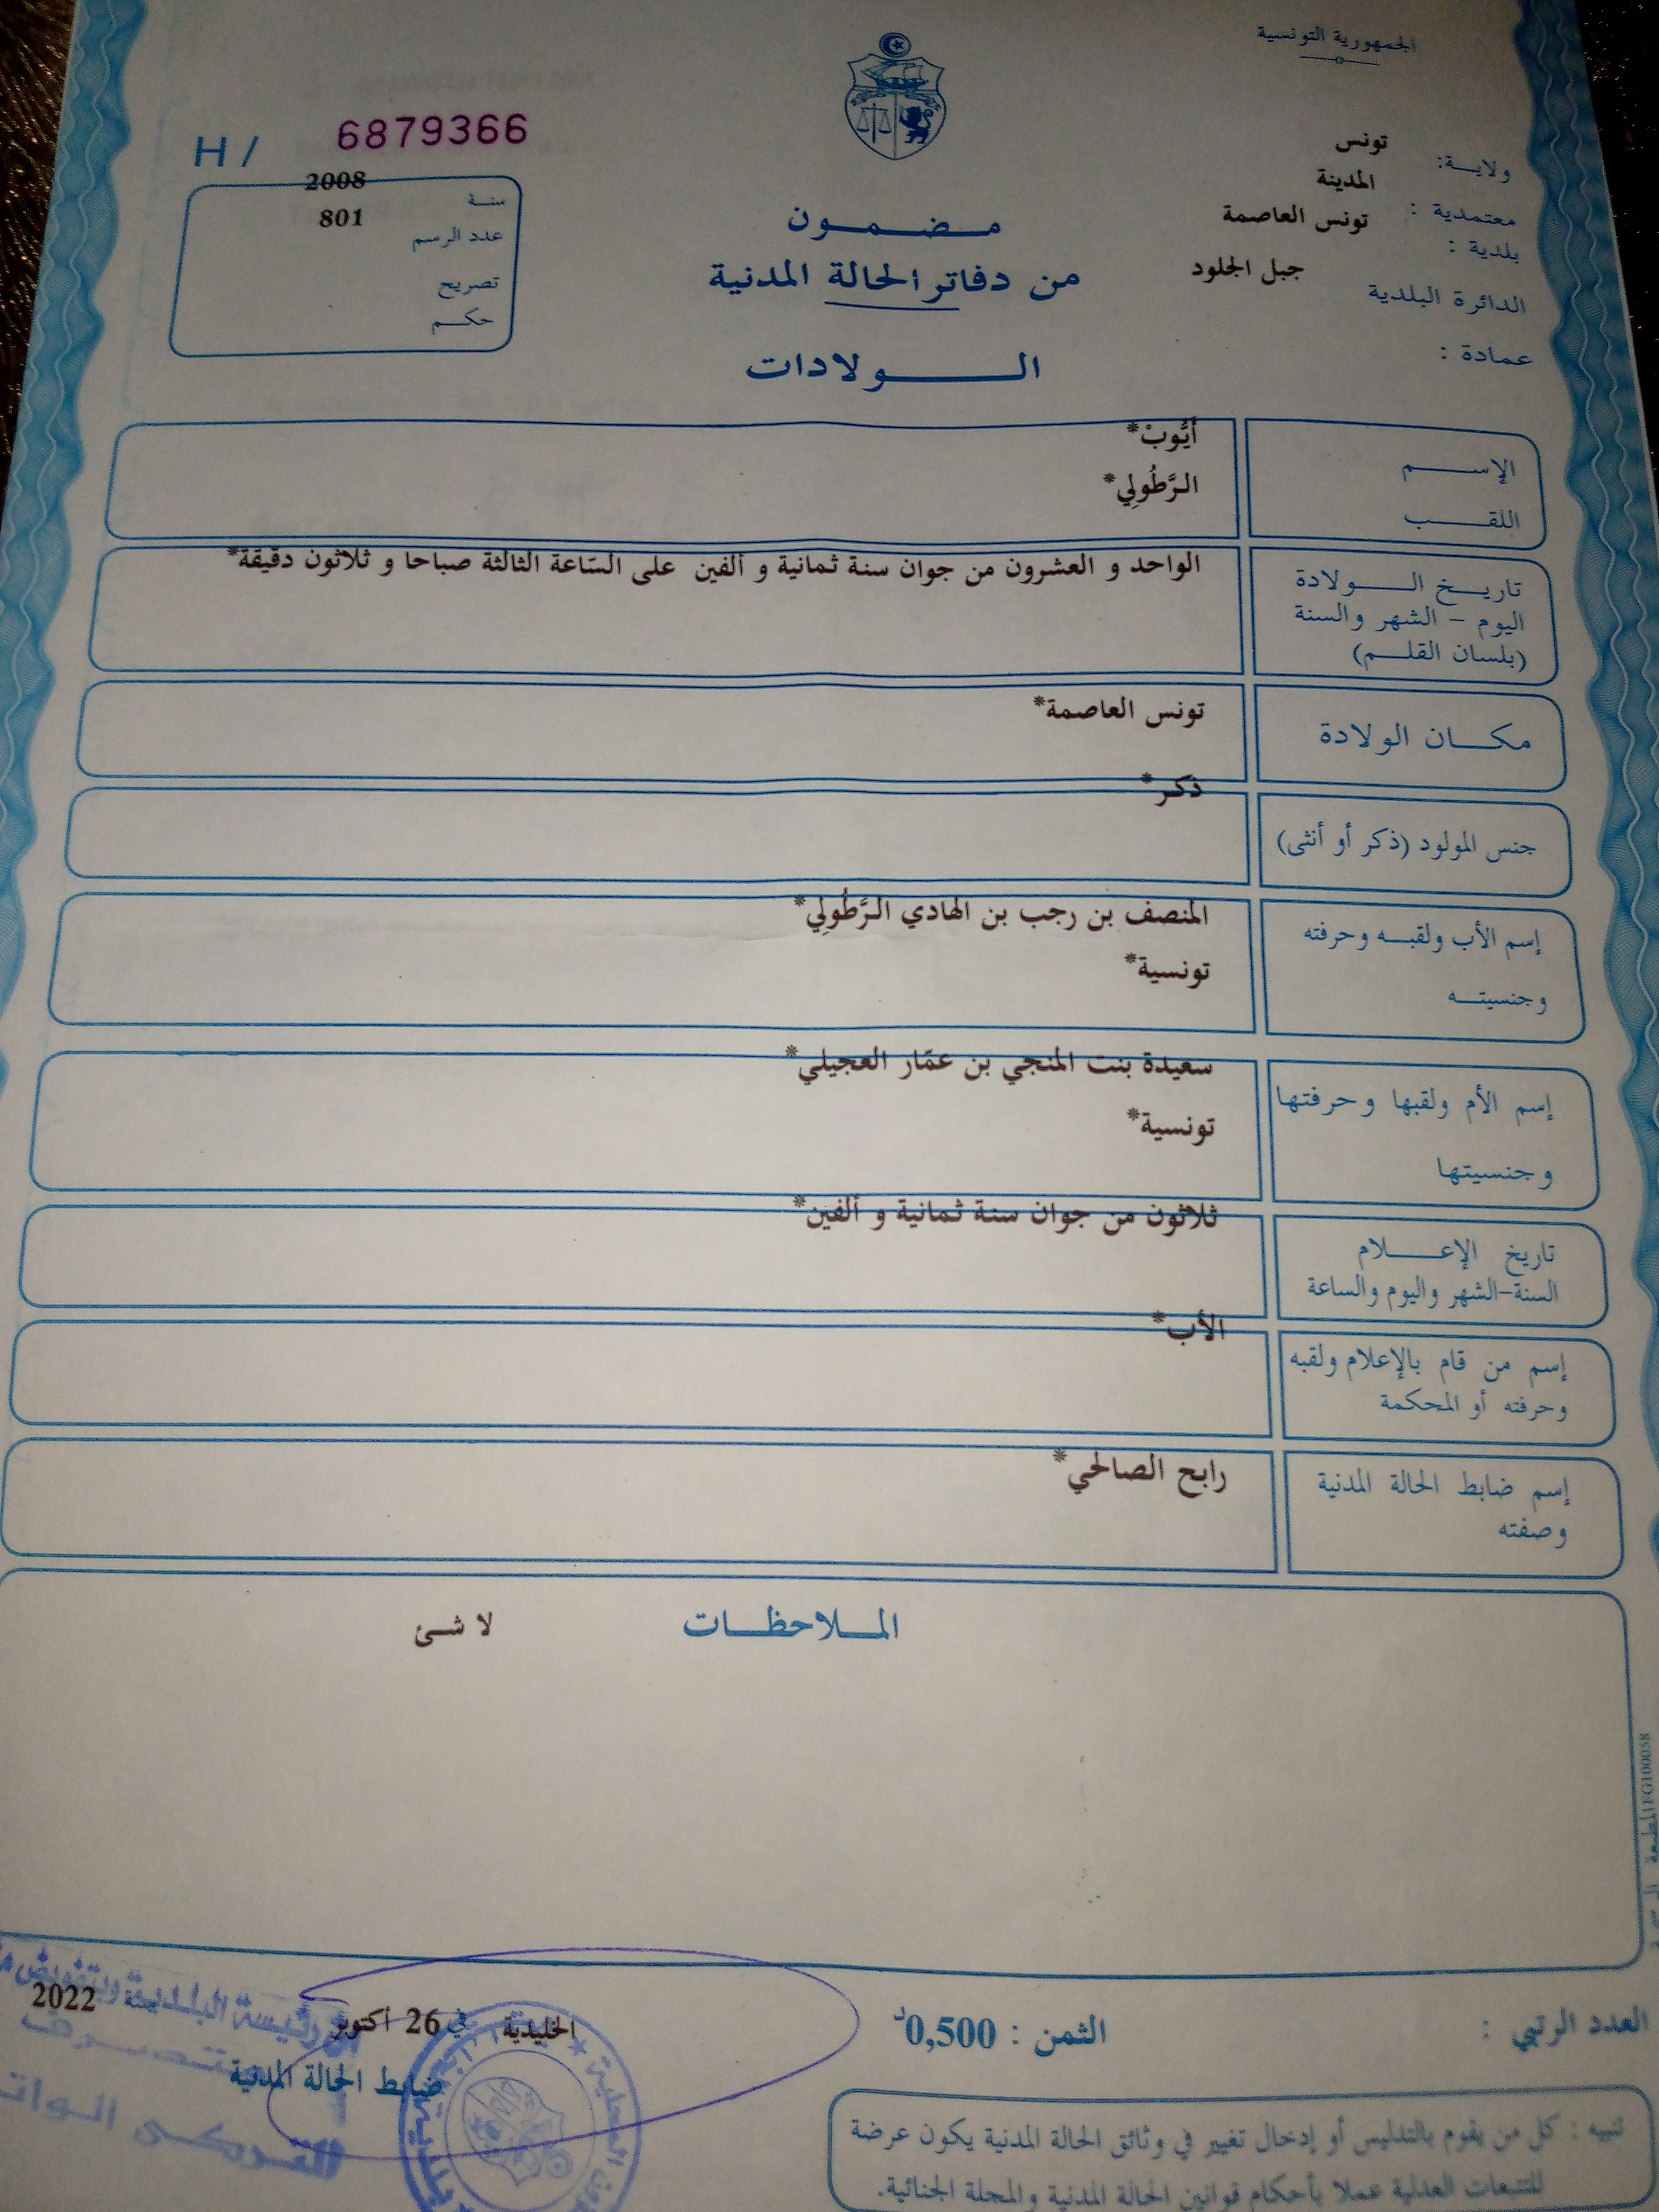 الجمهورية التونسية
ولاية: تونس
معتمدية : المدينة
بلدية : تونس العاصمة
الدائرة البلدية جبل الجلود
عمادة :
H / 6879366
سنة 2008
عدد الرسم 801
تصريح
حكم
مضمون
من دفاتر الحالة المدنية
الولادات
الإسم أَيُّوبْ*
اللقب الرَّطُولِي*
تاريخ الولادة
اليوم - الشهر والسنة
(بلسان القلم)
الواحد و العشرون من جوان سنة ثمانية و ألفين على السّاعة الثالثة صباحا و ثلاثون دقيقة*
مكان الولادة تونس العاصمة*
جنس المولود (ذكر أو أنثى) ذكر*
إسم الأب ولقبه وحرفته المنصف بن رجب بن الهادي الرَّطُولِي*
وجنسيته تونسية*
إسم الأم ولقبها وحرفتها سعيدة بنت المنجي بن عمّار العجيلي*
وجنسيتها تونسية*
تاريخ الإعلام ثلاثون من جوان سنة ثمانية و ألفين*
السنة-الشهر واليوم والساعة
إسم من قام بالإعلام ولقبه الأب*
وحرفته أو المحكمة
إسم ضابط الحالة المدنية رابح الصالحي*
وصفته
الملاحظات لا شئ
العدد الرتبي :
الثمن : 0,500د
الخليدية في 26 أكتوبر سنة 2022
ضابط الحالة المدنية
تنبيه : كل من يقوم بالتدليس أو إدخال تغيير في وثائق الحالة المدنية يكون عرضة
للتتبعات العدلية عملا بأحكام قوانين الحالة المدنية والمجلة الجنائية.